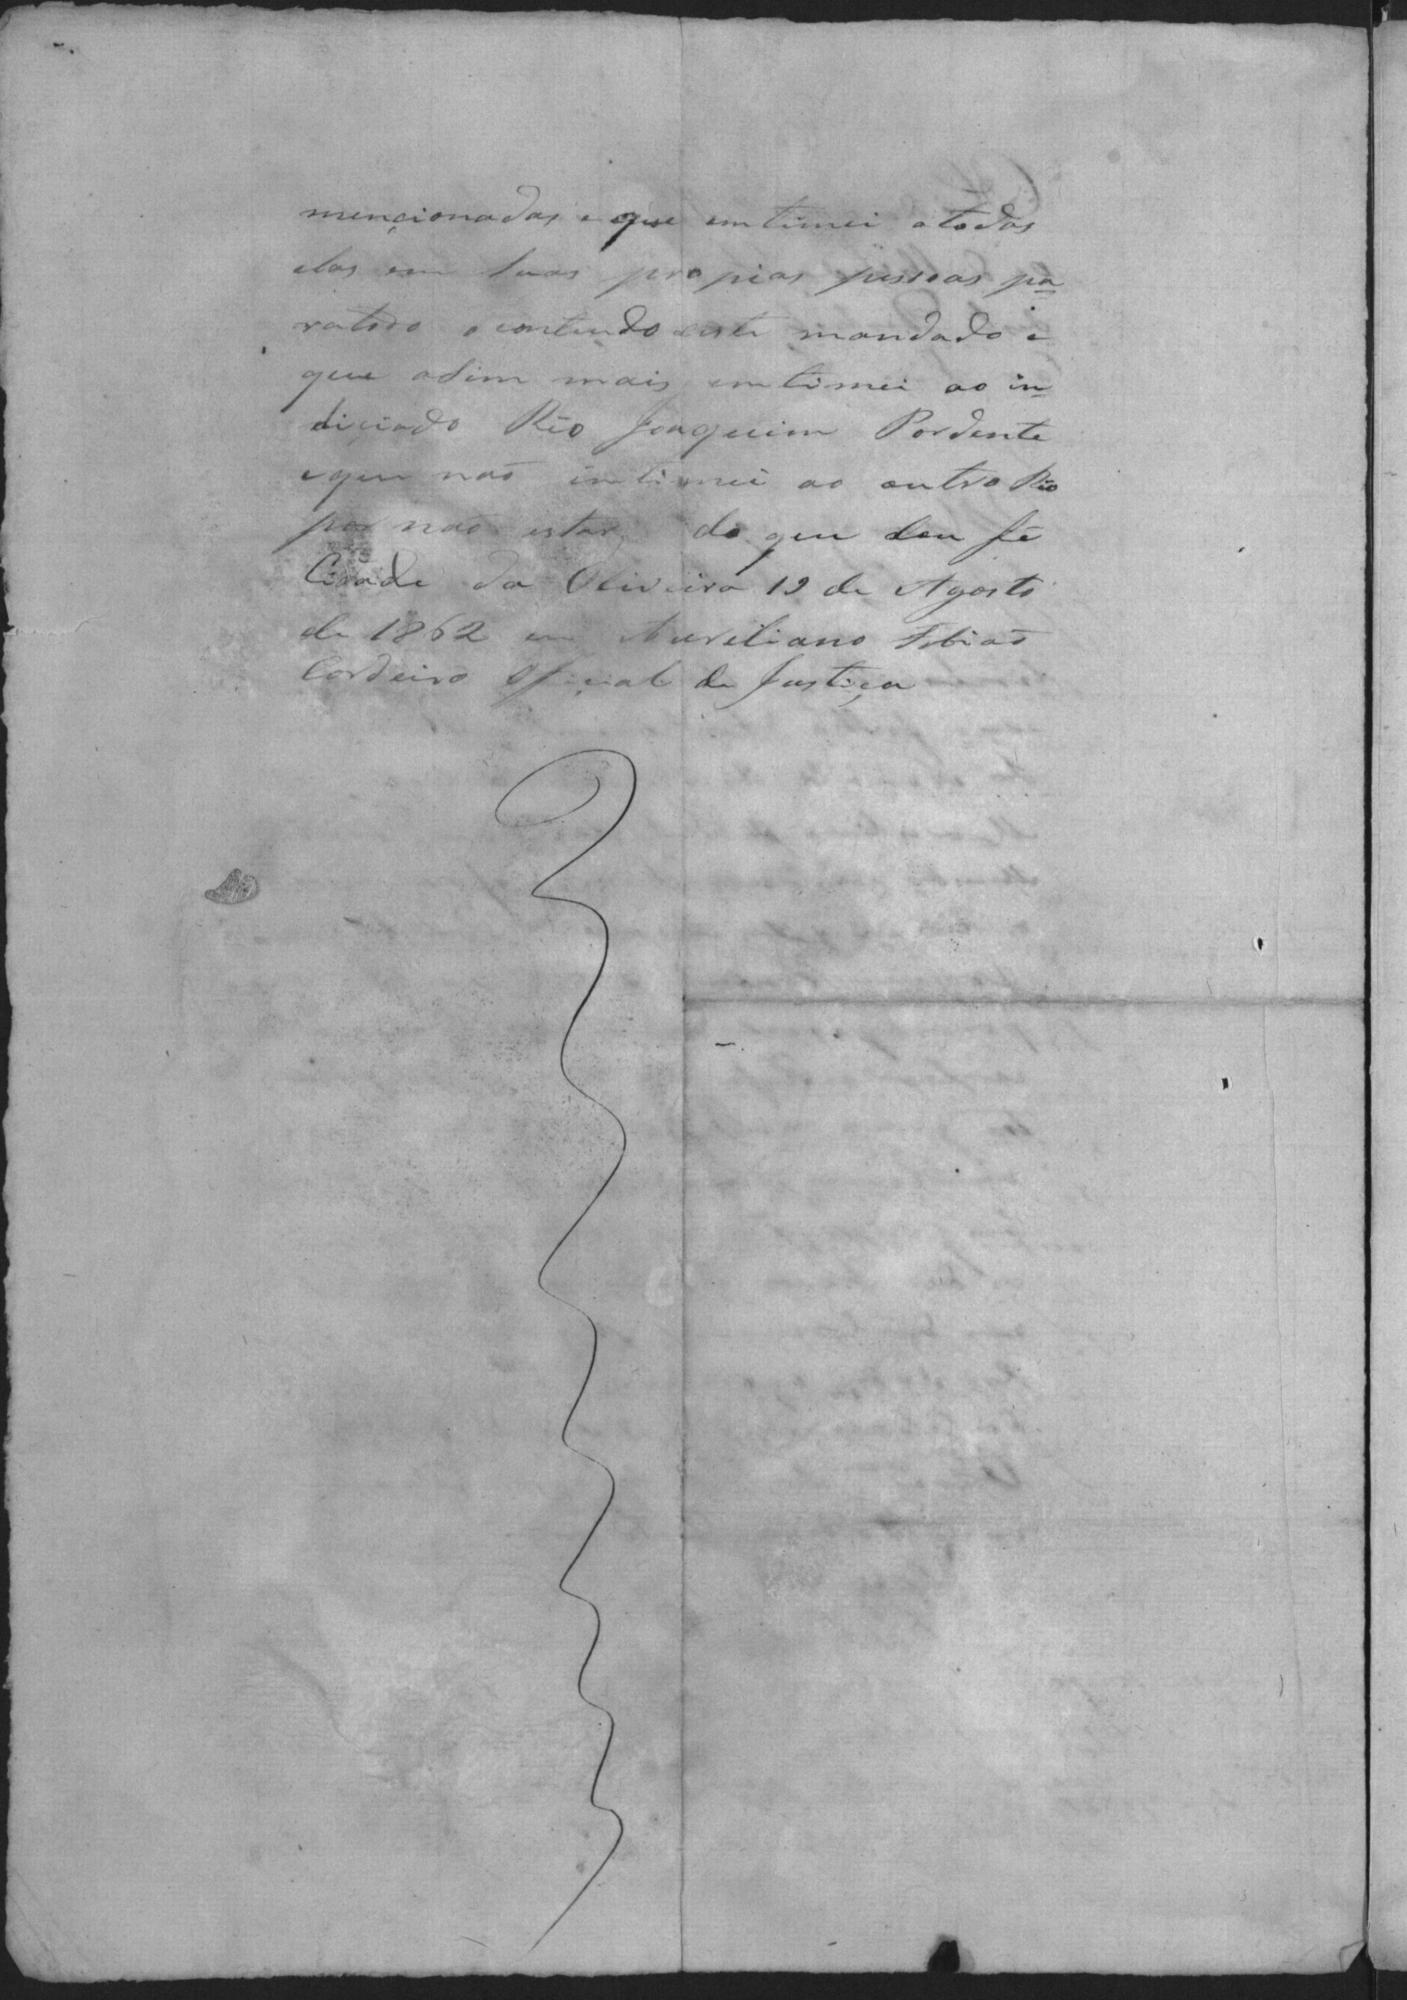 mençionadas e que emtimei atodas
elas em suas propias pessoas pa
ratodo ocontiudo deste mandado e
que asim mais emtimei ao in
diçiado Rèo Joaquim Pordente
eque naõ intimei ao outro Rèo
por naõ estar, do que dou fé
Cidade da Oliveira 19 de Agosto
de 1862 eu Aureliano
Cordeiro Ofiçial de Justiça